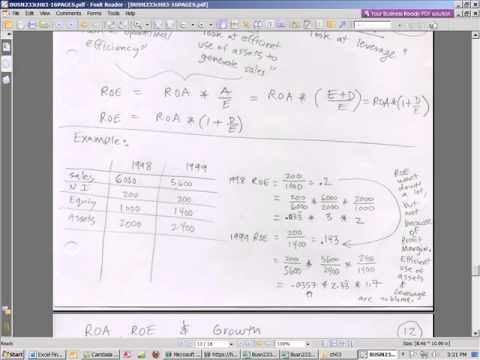 BUSN233ch03-16PAGES.pdf - Foxit Reader - [BUSN233ch03-16PAGES.pdf]
Your Business Reads PDF content
efficiency"
look at efficient
use of assets to
generate sales"
look at leverage"
ROE = ROA * A/E = ROA * (E+D/E) = ROA*(1+D/E)
ROE = ROA * (1+D/E)
Example:
1998 1999
Sales 6000 5600
N I 200 200
Equity 1000 1400
Assets 2000 2400
1998 ROE = 200/1000 = .2
= 200/6000 * 6000/2000 * 2000/1000
= .033 * 3 * 2
1999 ROE = 200/1400 = .143
= 200/5600 * 5600/2400 * 2400/1400
= .0357 * 2.33 * 1.7
ROE
went
down a
lot,
but
not
because
of
Profit
Margin.
Efficient
use of
assets
&
Leverage
are problems.
ROA ROE & Growth
12
13 / 16
Start
Excel Fin...
Camtasia ...
Microsoft ...
https://h...
Busn233...
ch03
BUSN23...
3:21 PM